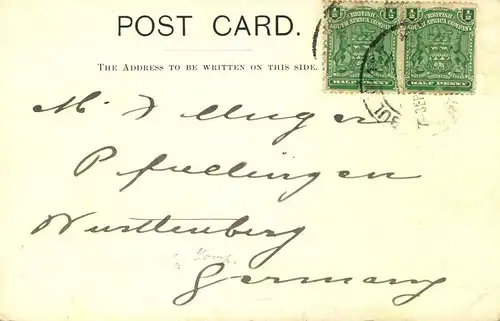 POST CARD.
THE ADDRESS TO BE WRITTEN ON THIS SIDE.
½ BRITISH SOUTH AFRICA COMPANY ½
HALF PENNY
½ BRITISH SOUTH AFRICA COMPANY ½
HALF PENNY
BUL
M.
Pfullingen
Wurttenberg
Germany